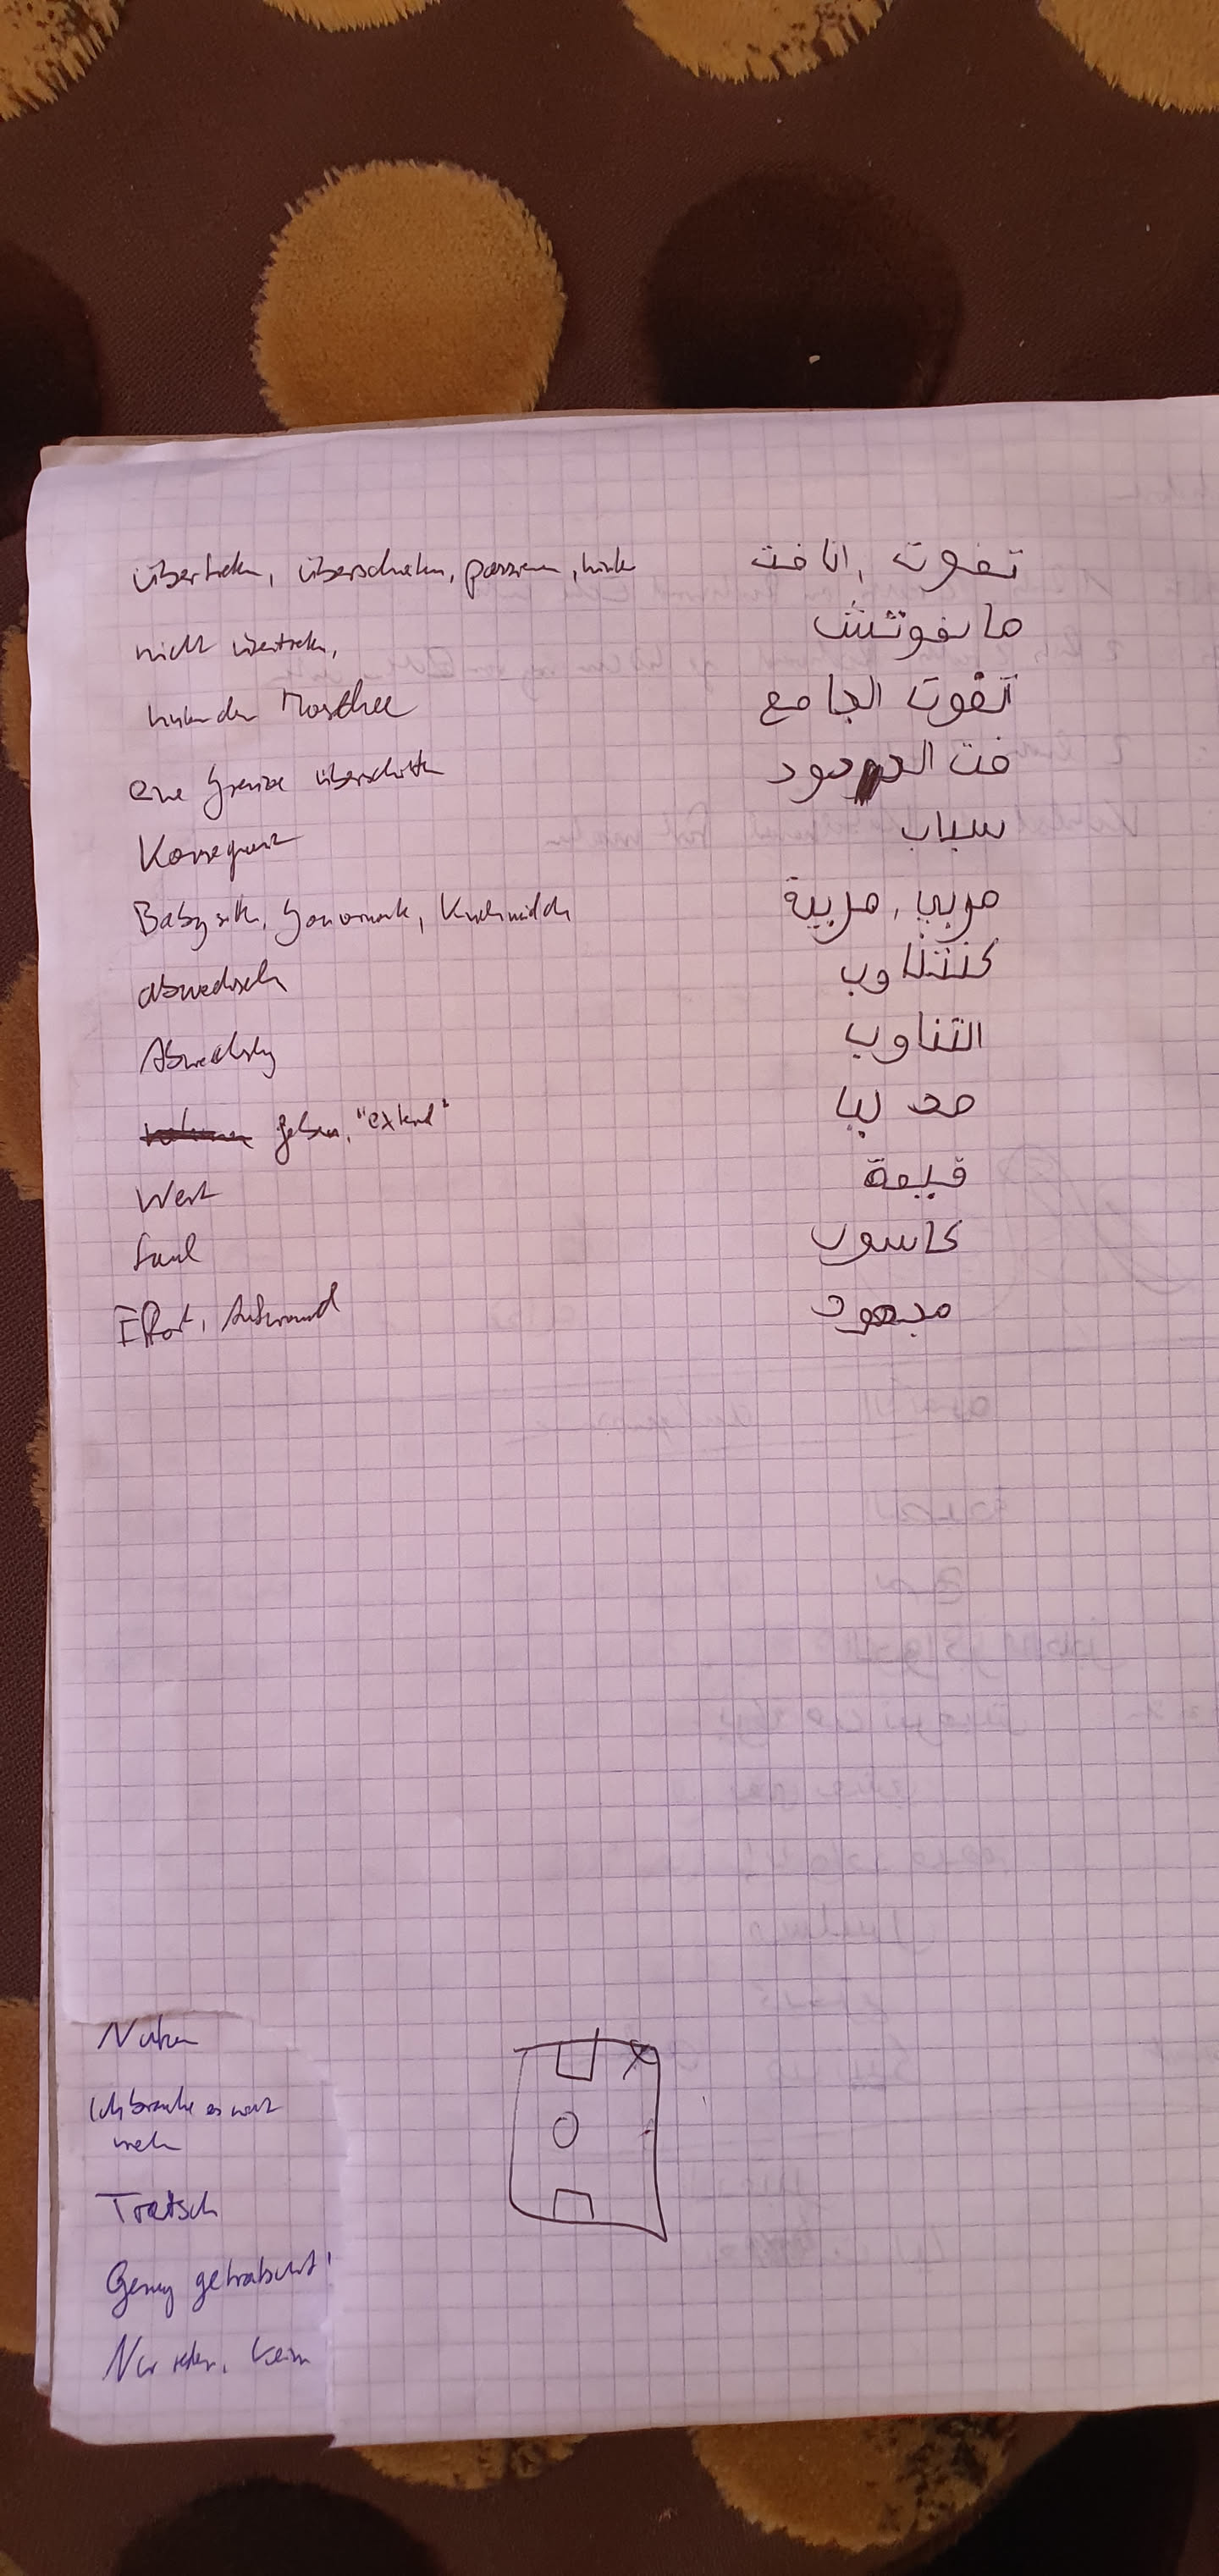 übertreten, überschreiten, passieren, hinter تفوت , انا فت
nicht übertreten, ما تفوتش
hinter der Moschee تفوت الجامع
eine Grenze überschritten فت الحدود
Konsequenz سباب
Babysitter, Gouvernante, Kindermädchen مربي , مربية
abwechseln كنتناوب
Abwechslung التناوب
geben, "extend" مد ليا
Wert قيمة
faul كاسول
Effort, Aufwand مجهود
Nutzen
Ich brauche es nicht
mehr
Tratsch
Genug getratscht!
Nur reden, kein